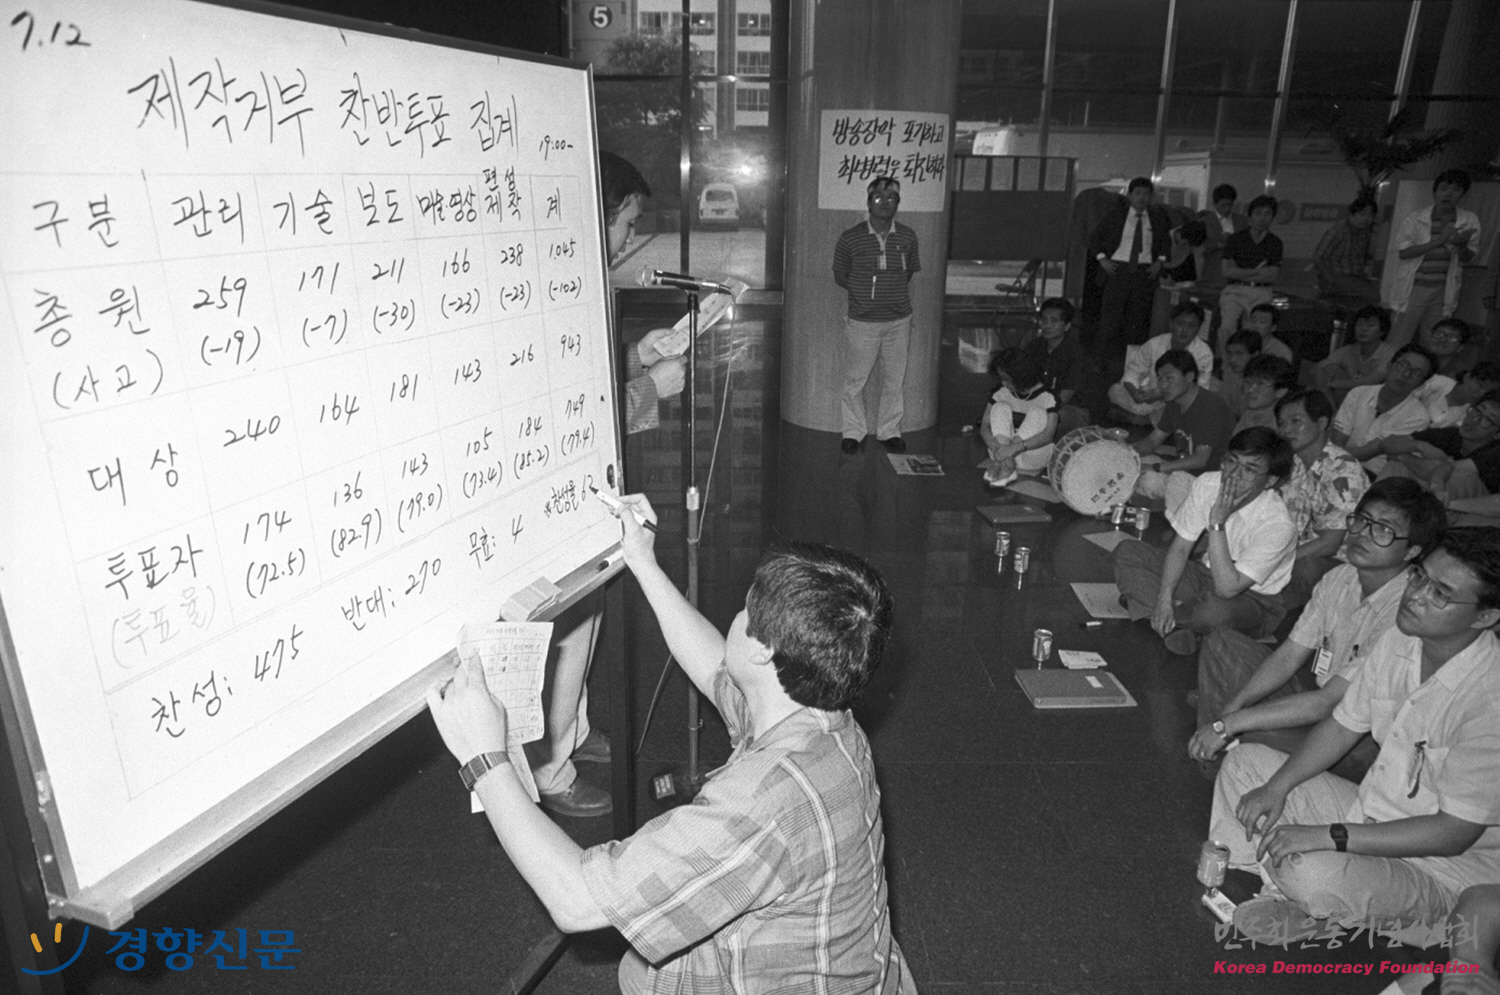 7.12
제작거부 찬반투표 집계
19:00~
구분 관리 기술 보도 미술영상 편성제작 계
총원 259 171 211 166 238 1045
(사고) (-19) (-7) (-30) (-23) (-23) (-102)
대상 240 164 181 143 216 943
투표자 174 136 143 105 184 749
(투표율) (72.5) (82.9) (79.0) (73.4) (85.2) (79.4)
찬성: 475 반대: 270 무효: 4 ※찬성율 63
5
방송장악 포기하고
최병렬은 퇴진하라
경향신문
민주화운동기념사업회
Korea Democracy Foundation